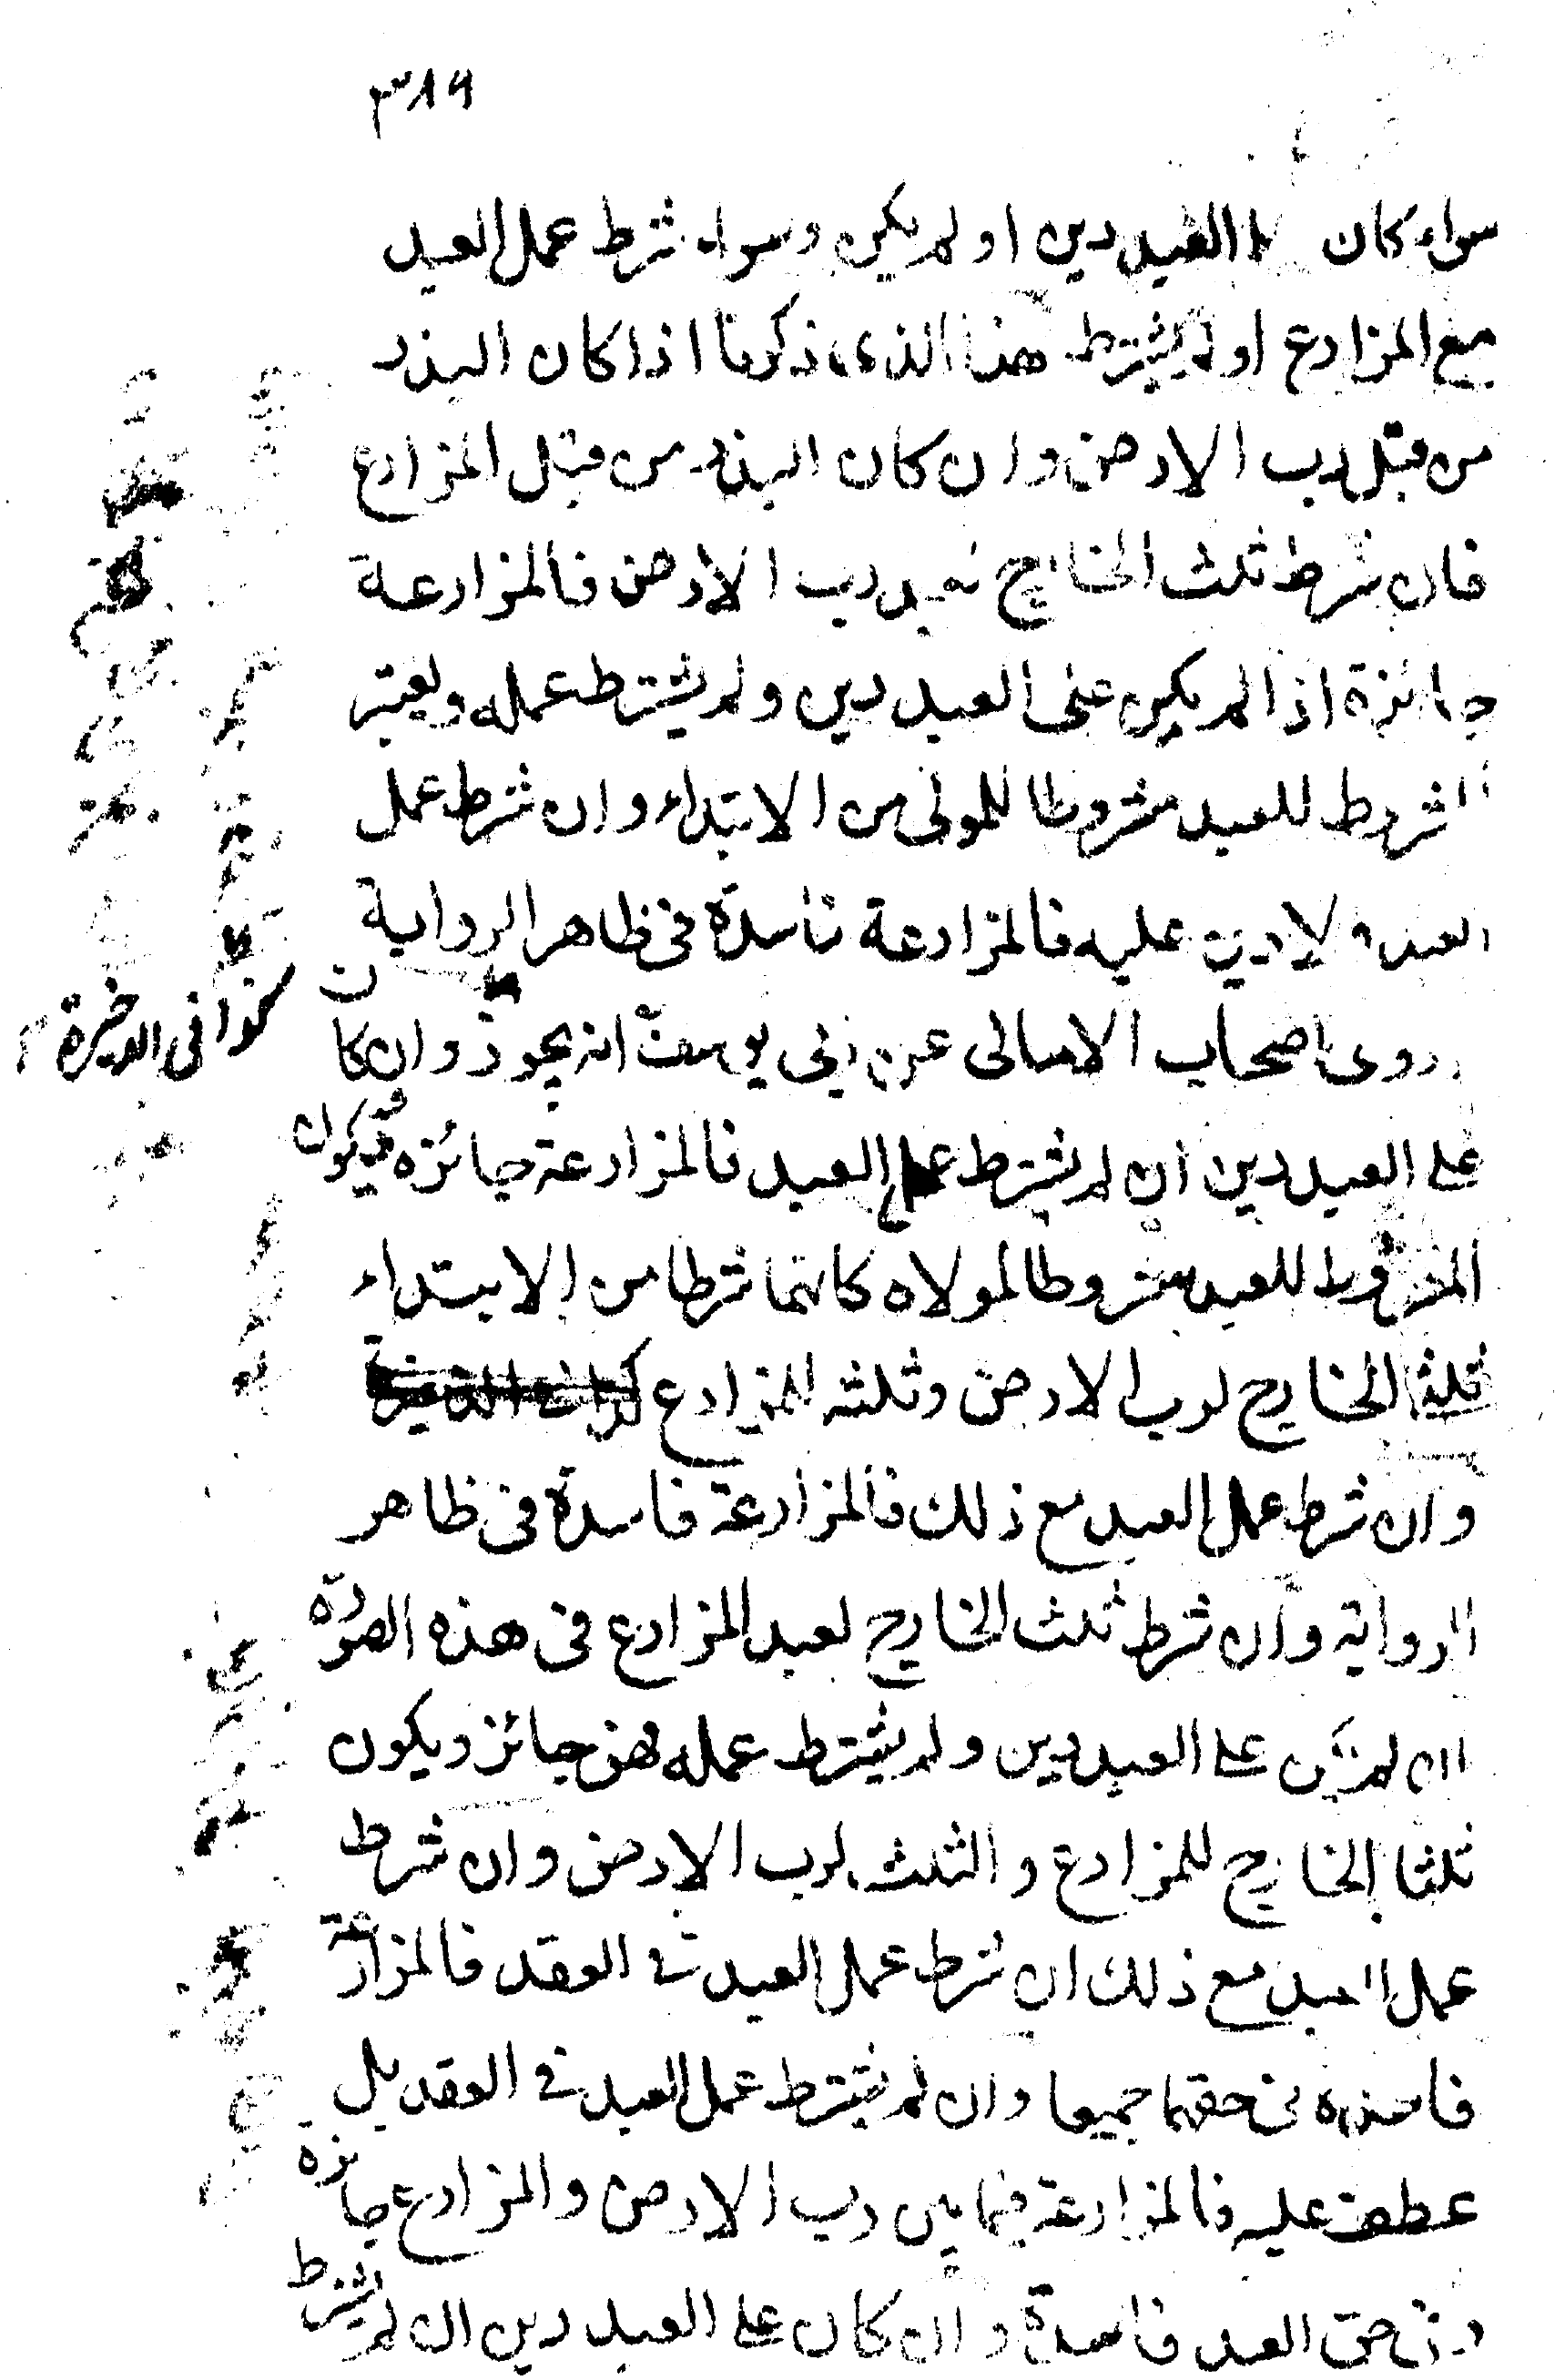 ٣٨٩
سواء كان على العبد دين او لم يكن وسواء شرط عمل العبد
مع المزارع او لم يشترط هذا الذى ذكرنا اذا كان البذر
من قبل رب الارض وان كان البذر من قبل المزارع
فان شرط ثلث الخارج لعبد رب الارض فالمزارعة
جائزة اذا لم يكن على العبد دين ولم يشترط عمله ويعتبر
المشروط للعبد مشروطا للمولى من الابتداء وان شرط عمل
العبد ولا دين عليه فالمزارعة فاسدة فى ظاهر الرواية
وروى اصحاب الامالى عن ابى يوسف انه يجوز وان كان
كذا فى الذخيرة
على العبد دين ان لم يشترط عمل العبد فالمزارعة جائزة فيكون
المشروط للعبد مشروطا لمولاه كانهما شرطا من الابتداء
ثلثا الخارج لرب الارض وثلثه للمزارع
وان شرط عمل العبد مع ذلك فالمزارعة فاسدة فى ظاهر
الرواية وان شرط ثلث الخارج لعبد المزارع فى هذه الصورة
ان لم يكن على العبد دين ولم يشترط عمله فهو جائز ويكون
ثلثا الخارج للمزارع والثلث لرب الارض وان شرط
عمل العبد مع ذلك ان شرط عمل العبد فى العقد فالمزارعة
فاسدة فى حقهما جميعا وان لم يشترط عمل العبد فى العقد بل
عطف عليه فالمزارعة فيما بين رب الارض والمزارع جائزة
وفى حق العبد فاسدة وان كان على العبد دين ان لم يشترط